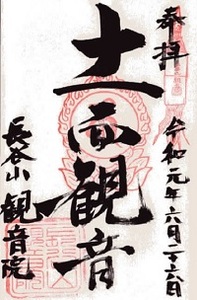 奉拝
令和元年六月二十六日
十一面観音
長谷山観音院